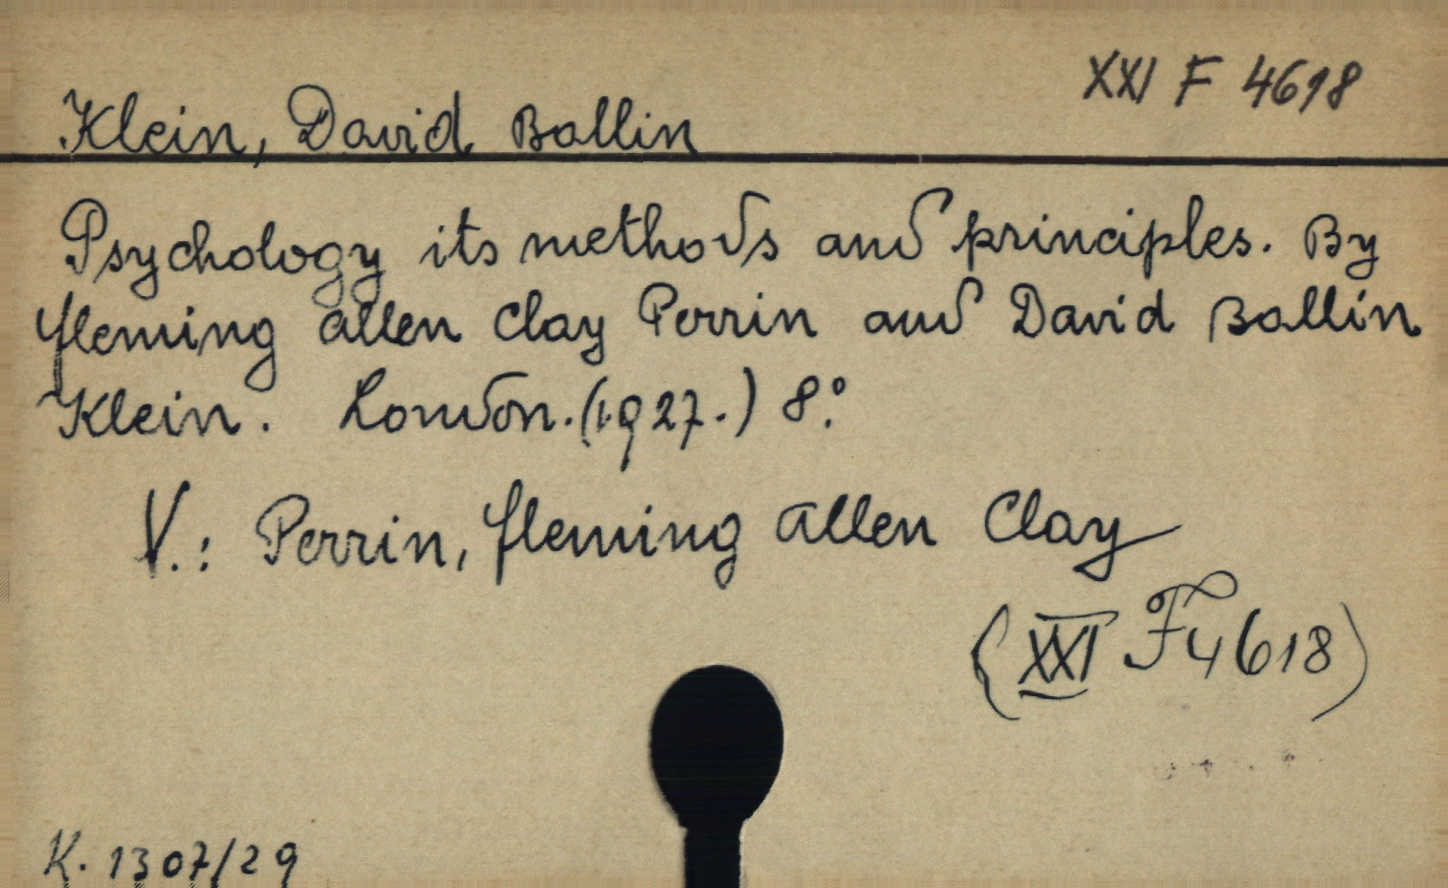 XXI F 4618
Klein, David Ballin
Psychology its methods and principles. By
fleming allen Clay Perrin and David Ballin
Klein. London. (1927.) 8°.
V.: Perrin, fleming allen Clay
(XXI F 4618)
K. 1307/29